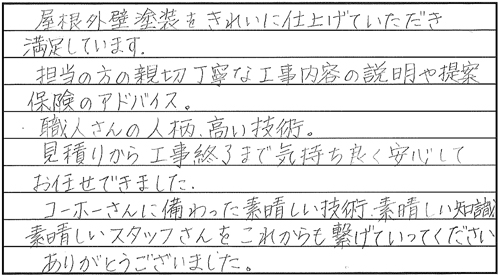 屋根外壁塗装をきれいに仕上げていただき
満足しています.
担当の方の親切丁寧な工事内容の説明や提案
保険のアドバイス。
職人さんの人柄、高い技術。
見積りから工事終了まで気持ち良く安心して
お任せできました.
コーホーさんに備わった素晴しい技術、素晴しい知識
素晴しいスタッフさんをこれからも繋げていってください
ありがとうございました。